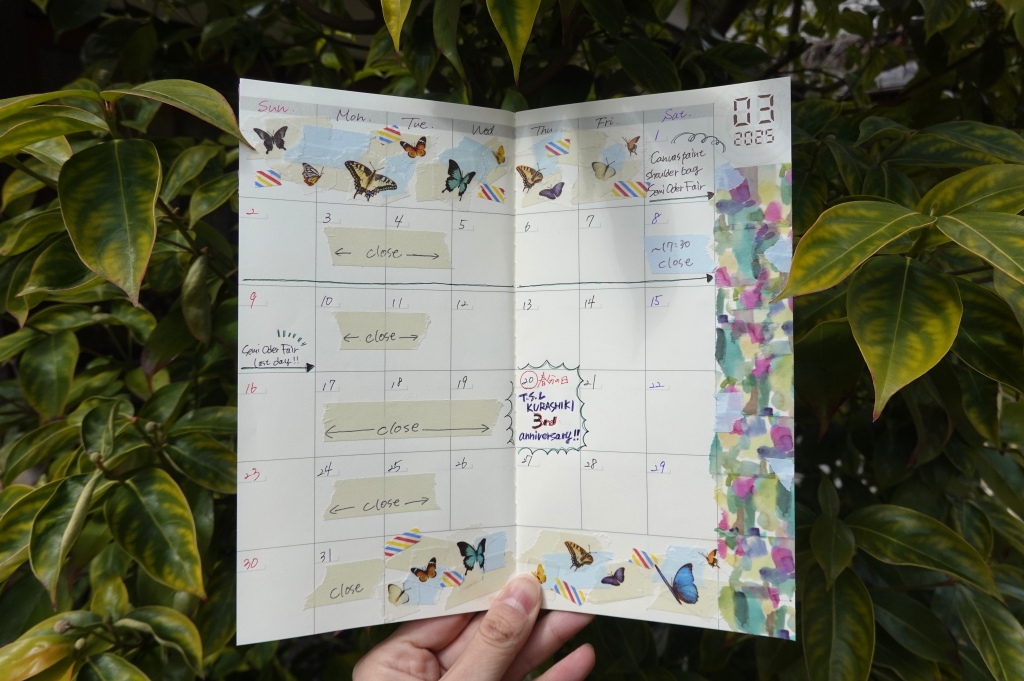 03
2025
Sun. Mon. Tue. Wed Thu Fri. Sat.
1
Canvas paint
shoulder bag
Semi Oder Fair
2 3 4 5 6 7 8
← close →
~17:30
close
9 10 11 12 13 14 15
← close →
Semi Oder Fair
last day!!
16 17 18 19 20 春分の日 21 22
← close →
T.S.L
KURASHIKI
3rd
anniversary!!
23 24 25 26 27 28 29
← close →
30 31
close